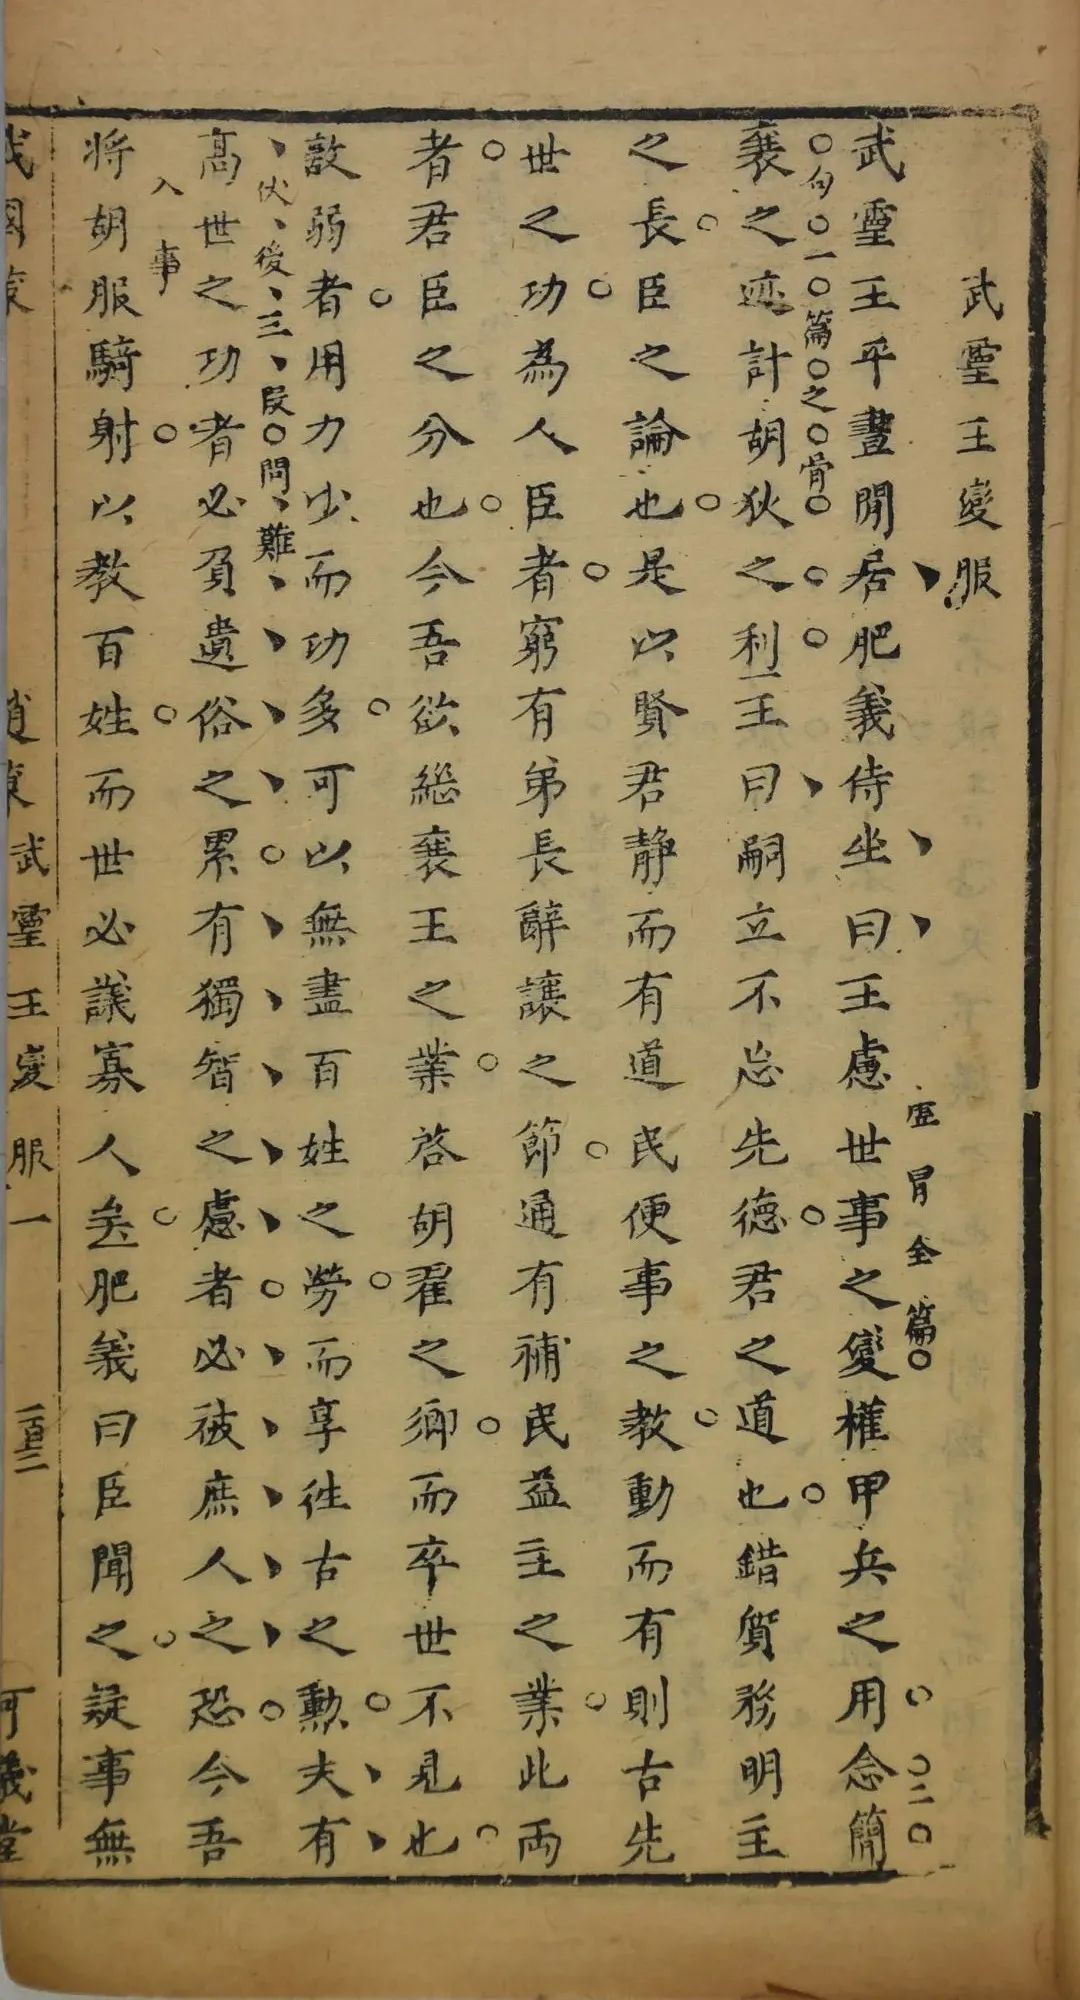 武靈王變服
武靈王平晝閒居肥義侍坐曰王慮世事之變權甲兵之用念簡
直冒全篇
二句一篇之骨
襄之迹計胡狄之利王曰嗣立不忘先德君之道也錯質務明主
之長臣之論也是以賢君静而有道民便事之教動而有則古先
世之功為人臣者窮有弟長辭讓之節通有補民益主之業此両
者君臣之分也今吾欲継襄王之業啓胡翟之卿而卒世不見也
敵弱者用力少而功多可以無盡百姓之勞而享徃古之勲夫有
伏後三段問難
高世之功者必負遺俗之累有獨智之慮者必被庶人之恐今吾
入事
将胡服騎射以教百姓而世必議寡人矣肥義曰臣聞之疑事無
戰國策 趙策武靈王變服一 一百三二 可儀堂